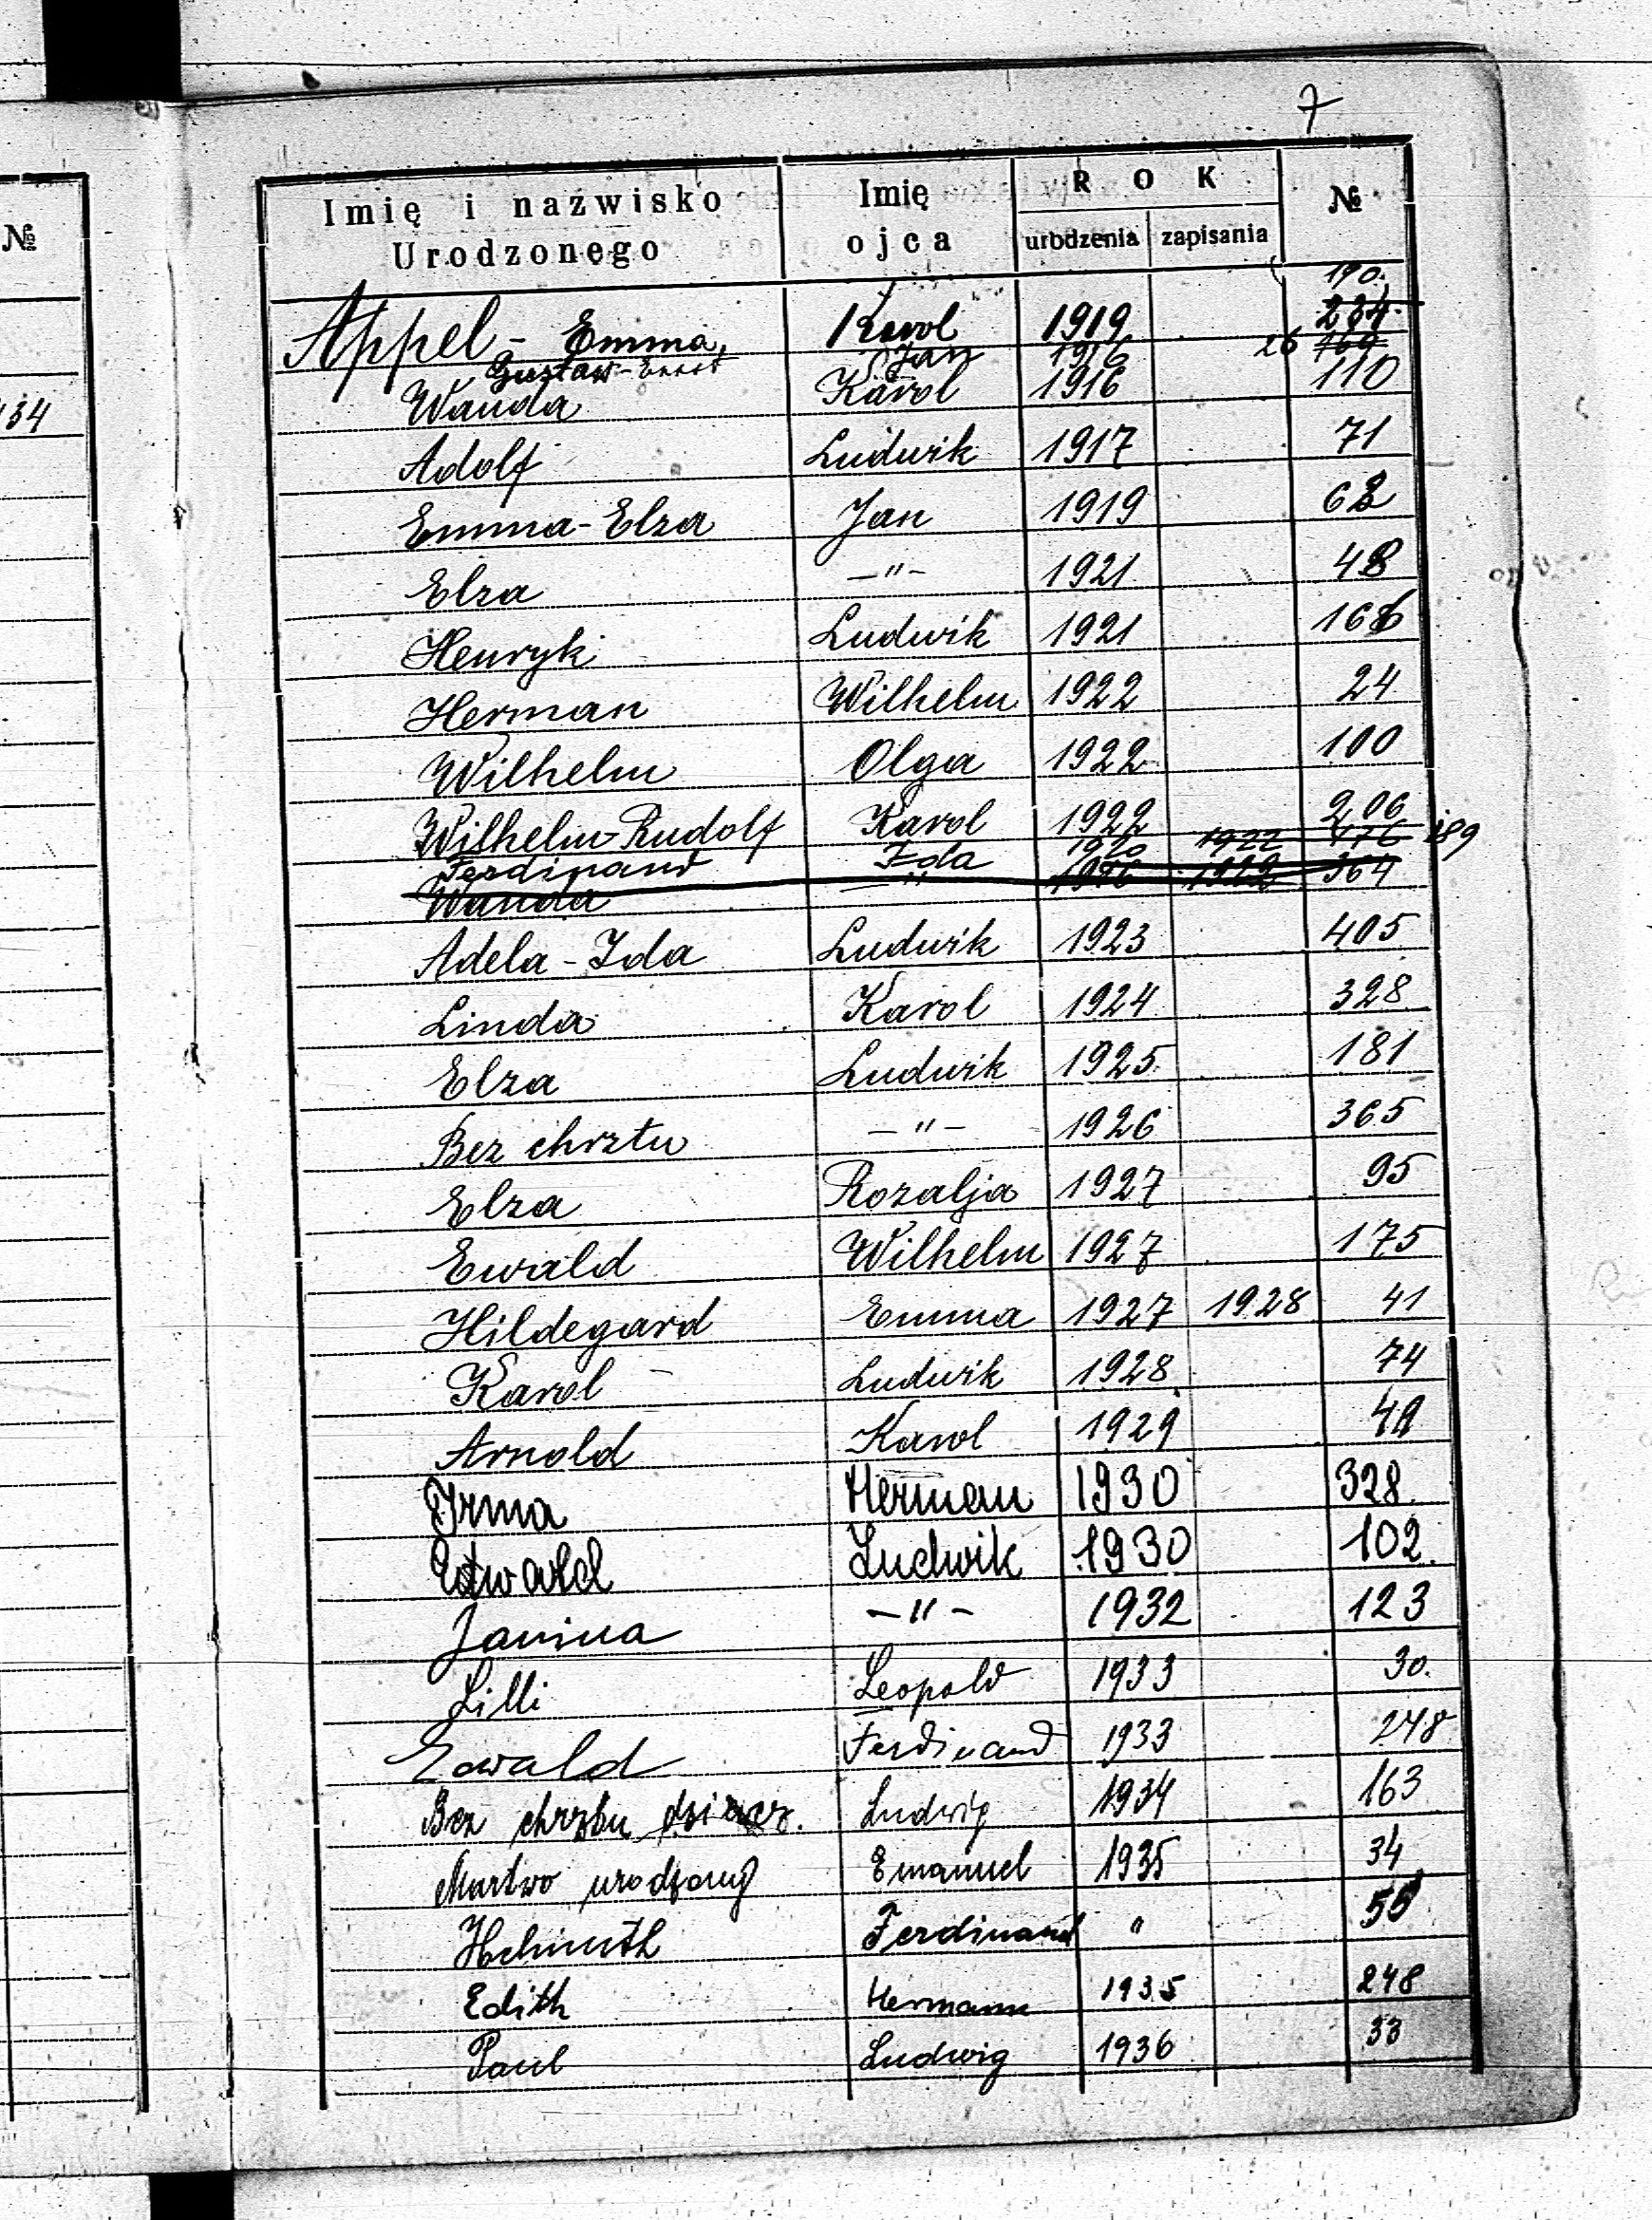 7
№
134
Imię i nazwisko Urodzonego
Imię ojca
ROK
urodzenia zapisania
№
190.
Appel - Emma, Karol 1919 234
Gustaw-Ernst Jan 1916 26 169
Wanda Karol 1916 110
Adolf Ludwik 1917 71
Emma-Elza Jan 1919 62
Elza -"- 1921 48
Henryk Ludwik 1921 166
Herman Wilhelm 1922 24
Wilhelm Olga 1922 100
Wilhelm Rudolf Karol 1922 206
Ferdinand Ida 1920 1922 476 189
Wanda -"- 1922 364
Adela-Ida Ludwik 1923 405
Linda Karol 1924 328
Elza Ludwik 1925 181
Bez chrztu -"- 1926 365
Elza Rozalja 1927 95
Ewald Wilhelm 1927 175
Hildegard Emma 1927 1928 41
Karol Ludwik 1928 74
Arnold Karol 1929
Irma Herman 1930 328
Edward Ludwik 1930 102
Janina -"- 1932 123
Lilli Leopold 1933 30.
Ewald Ferdinand 1933 248
Bez chrztu Ludwig 1934 163
Martwo urodzony Emanuel 1935 34
Helmuth Ferdinand " 55
Edith Hermann 1935 248
Paul Ludwig 1936 33